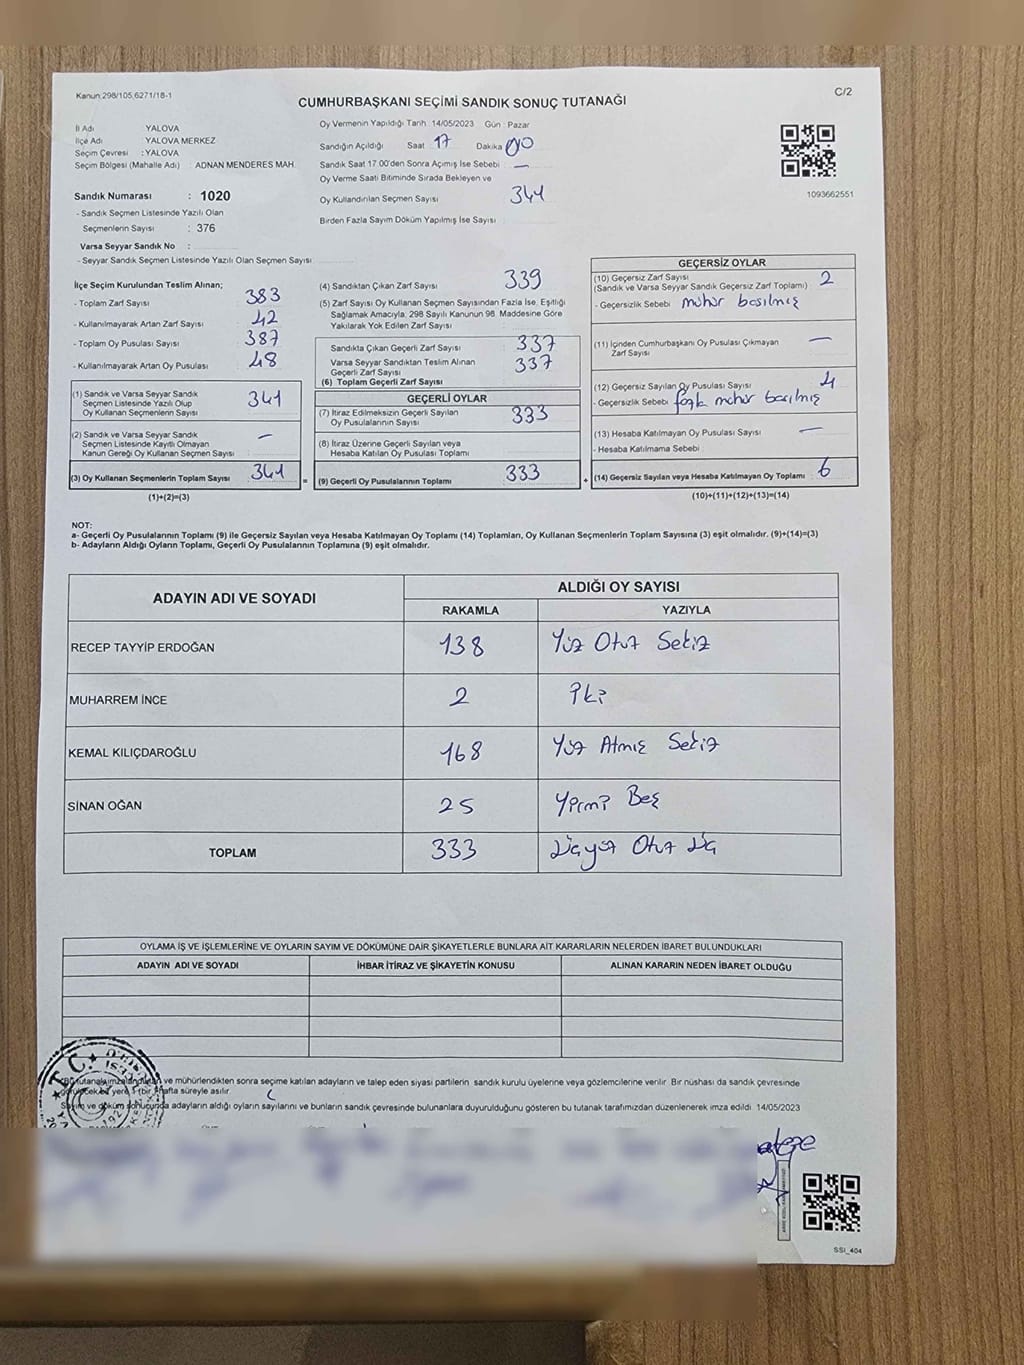 Kanun 298/105,6271/18-1
C/2
CUMHURBAŞKANI SEÇİMİ SANDIK SONUÇ TUTANAĞI
İl Adı YALOVA
İlçe Adı YALOVA MERKEZ
Seçim Çevresi : YALOVA
Seçim Bölgesi (Mahalle Adı) ADNAN MENDERES MAH.
Sandık Numarası : 1020
- Sandık Seçmen Listesinde Yazılı Olan
Seçmenlerin Sayısı : 376
Varsa Seyyar Sandık No :
- Seyyar Sandık Seçmen Listesinde Yazılı Olan Seçmen Sayısı
Oy Vermenin Yapıldığı Tarih 14/05/2023 Gün Pazar
Sandığın Açıldığı Saat 17 Dakika 00
Sandık Saat 17.00'den Sonra Açılmış İse Sebebi —
Oy Verme Saati Bitiminde Sırada Bekleyen ve
Oy Kullandırılan Seçmen Sayısı 341
Birden Fazla Sayım Döküm Yapılmış İse Sayısı
1093662551
İlçe Seçim Kurulundan Teslim Alınan;
- Toplam Zarf Sayısı 383
- Kullanılmayarak Artan Zarf Sayısı 42
- Toplam Oy Pusulası Sayısı 387
- Kullanılmayarak Artan Oy Pusulası 48
(1) Sandık ve Varsa Seyyar Sandık
Seçmen Listesinde Yazılı Olup
Oy Kullanan Seçmenlerin Sayısı 341
(2) Sandık ve Varsa Seyyar Sandık
Seçmen Listesinde Kayıtlı Olmayan
Kanun Gereği Oy Kullanan Seçmen Sayısı —
(3) Oy Kullanan Seçmenlerin Toplam Sayısı 341
(1)+(2)=(3)
(4) Sandıktan Çıkan Zarf Sayısı 339
(5) Zarf Sayısı Oy Kullanan Seçmen Sayısından Fazla İse, Eşitliği
Sağlamak Amacıyla, 298 Sayılı Kanunun 98. Maddesine Göre
Yakılarak Yok Edilen Zarf Sayısı
Sandıkta Çıkan Geçerli Zarf Sayısı 337
Varsa Seyyar Sandıktan Teslim Alınan
Geçerli Zarf Sayısı 337
(6) Toplam Geçerli Zarf Sayısı
GEÇERLİ OYLAR
(7) İtiraz Edilmeksizin Geçerli Sayılan
Oy Pusulalarının Sayısı 333
(8) İtiraz Üzerine Geçerli Sayılan veya
Hesaba Katılan Oy Pusulası Toplamı
= (9) Geçerli Oy Pusulalarının Toplamı 333
GEÇERSİZ OYLAR
(10) Geçersiz Zarf Sayısı 2
(Sandık ve Varsa Seyyar Sandık Geçersiz Zarf Toplamı)
- Geçersizlik Sebebi mühür basılmış
(11) İçinden Cumhurbaşkanı Oy Pusulası Çıkmayan
Zarf Sayısı —
(12) Geçersiz Sayılan Oy Pusulası Sayısı 4
- Geçersizlik Sebebi fazla mühür basılmış
(13) Hesaba Katılmayan Oy Pusulası Sayısı —
- Hesaba Katılmama Sebebi
+ (14) Geçersiz Sayılan veya Hesaba Katılmayan Oy Toplamı 6
(10)+(11)+(12)+(13)=(14)
NOT:
a- Geçerli Oy Pusulalarının Toplamı (9) ile Geçersiz Sayılan veya Hesaba Katılmayan Oy Toplamı (14) Toplamları, Oy Kullanan Seçmenlerin Toplam Sayısına (3) eşit olmalıdır. (9)+(14)=(3)
b- Adayların Aldığı Oyların Toplamı, Geçerli Oy Pusulalarının Toplamına (9) eşit olmalıdır.
ADAYIN ADI VE SOYADI
ALDIĞI OY SAYISI
RAKAMLA YAZIYLA
RECEP TAYYİP ERDOĞAN 138 Yüz Otuz Sekiz
MUHARREM İNCE 2 İki
KEMAL KILIÇDAROĞLU 168 Yüz Atmış Sekiz
SİNAN OĞAN 25 Yirmi Beş
TOPLAM 333 Üçyüz Otuz Üç
OYLAMA İŞ VE İŞLEMLERİNE VE OYLARIN SAYIM VE DÖKÜMÜNE DAİR ŞİKAYETLERLE BUNLARA AİT KARARLARIN NELERDEN İBARET BULUNDUKLARI
ADAYIN ADI VE SOYADI İHBAR İTİRAZ VE ŞİKAYETİN KONUSU ALINAN KARARIN NEDEN İBARET OLDUĞU
ve mühürlendikten sonra seçime katılan adayların ve talep eden siyasi partilerin sandık kurulu üyelerine veya gözlemcilerine verilir. Bir nüshası da sandık çevresinde
bir yere 1 (bir) hafta süreyle asılır
Sayım ve döküm sonucunda adayların aldığı oyların sayılarını ve bunların sandık çevresinde bulunanlara duyurulduğunu gösteren bu tutanak tarafımızdan düzenlenerek imza edildi 14/05/2023
T.C.
SSI_404